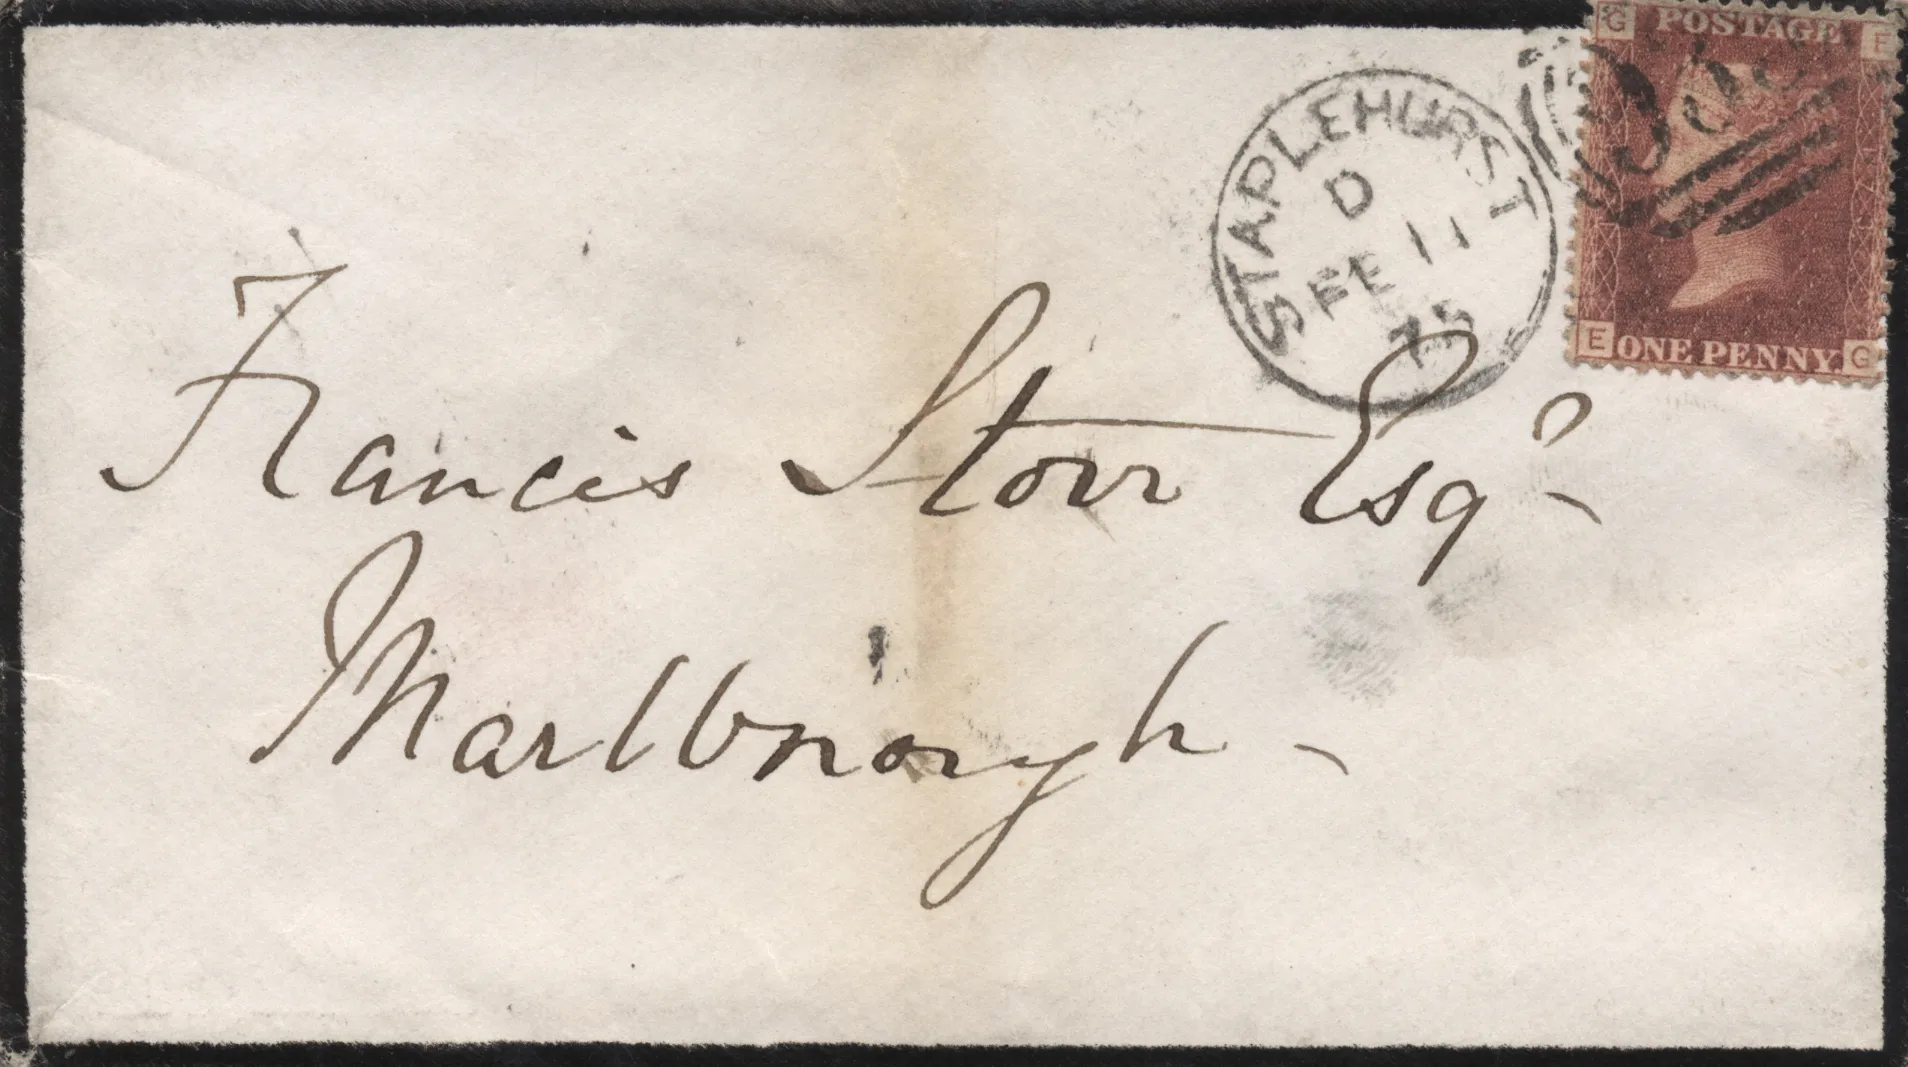 G POSTAGE F
STAPLEHURST
D
FE 11
75
E ONE PENNY. G
Francis Storr Esqr
Marlborough